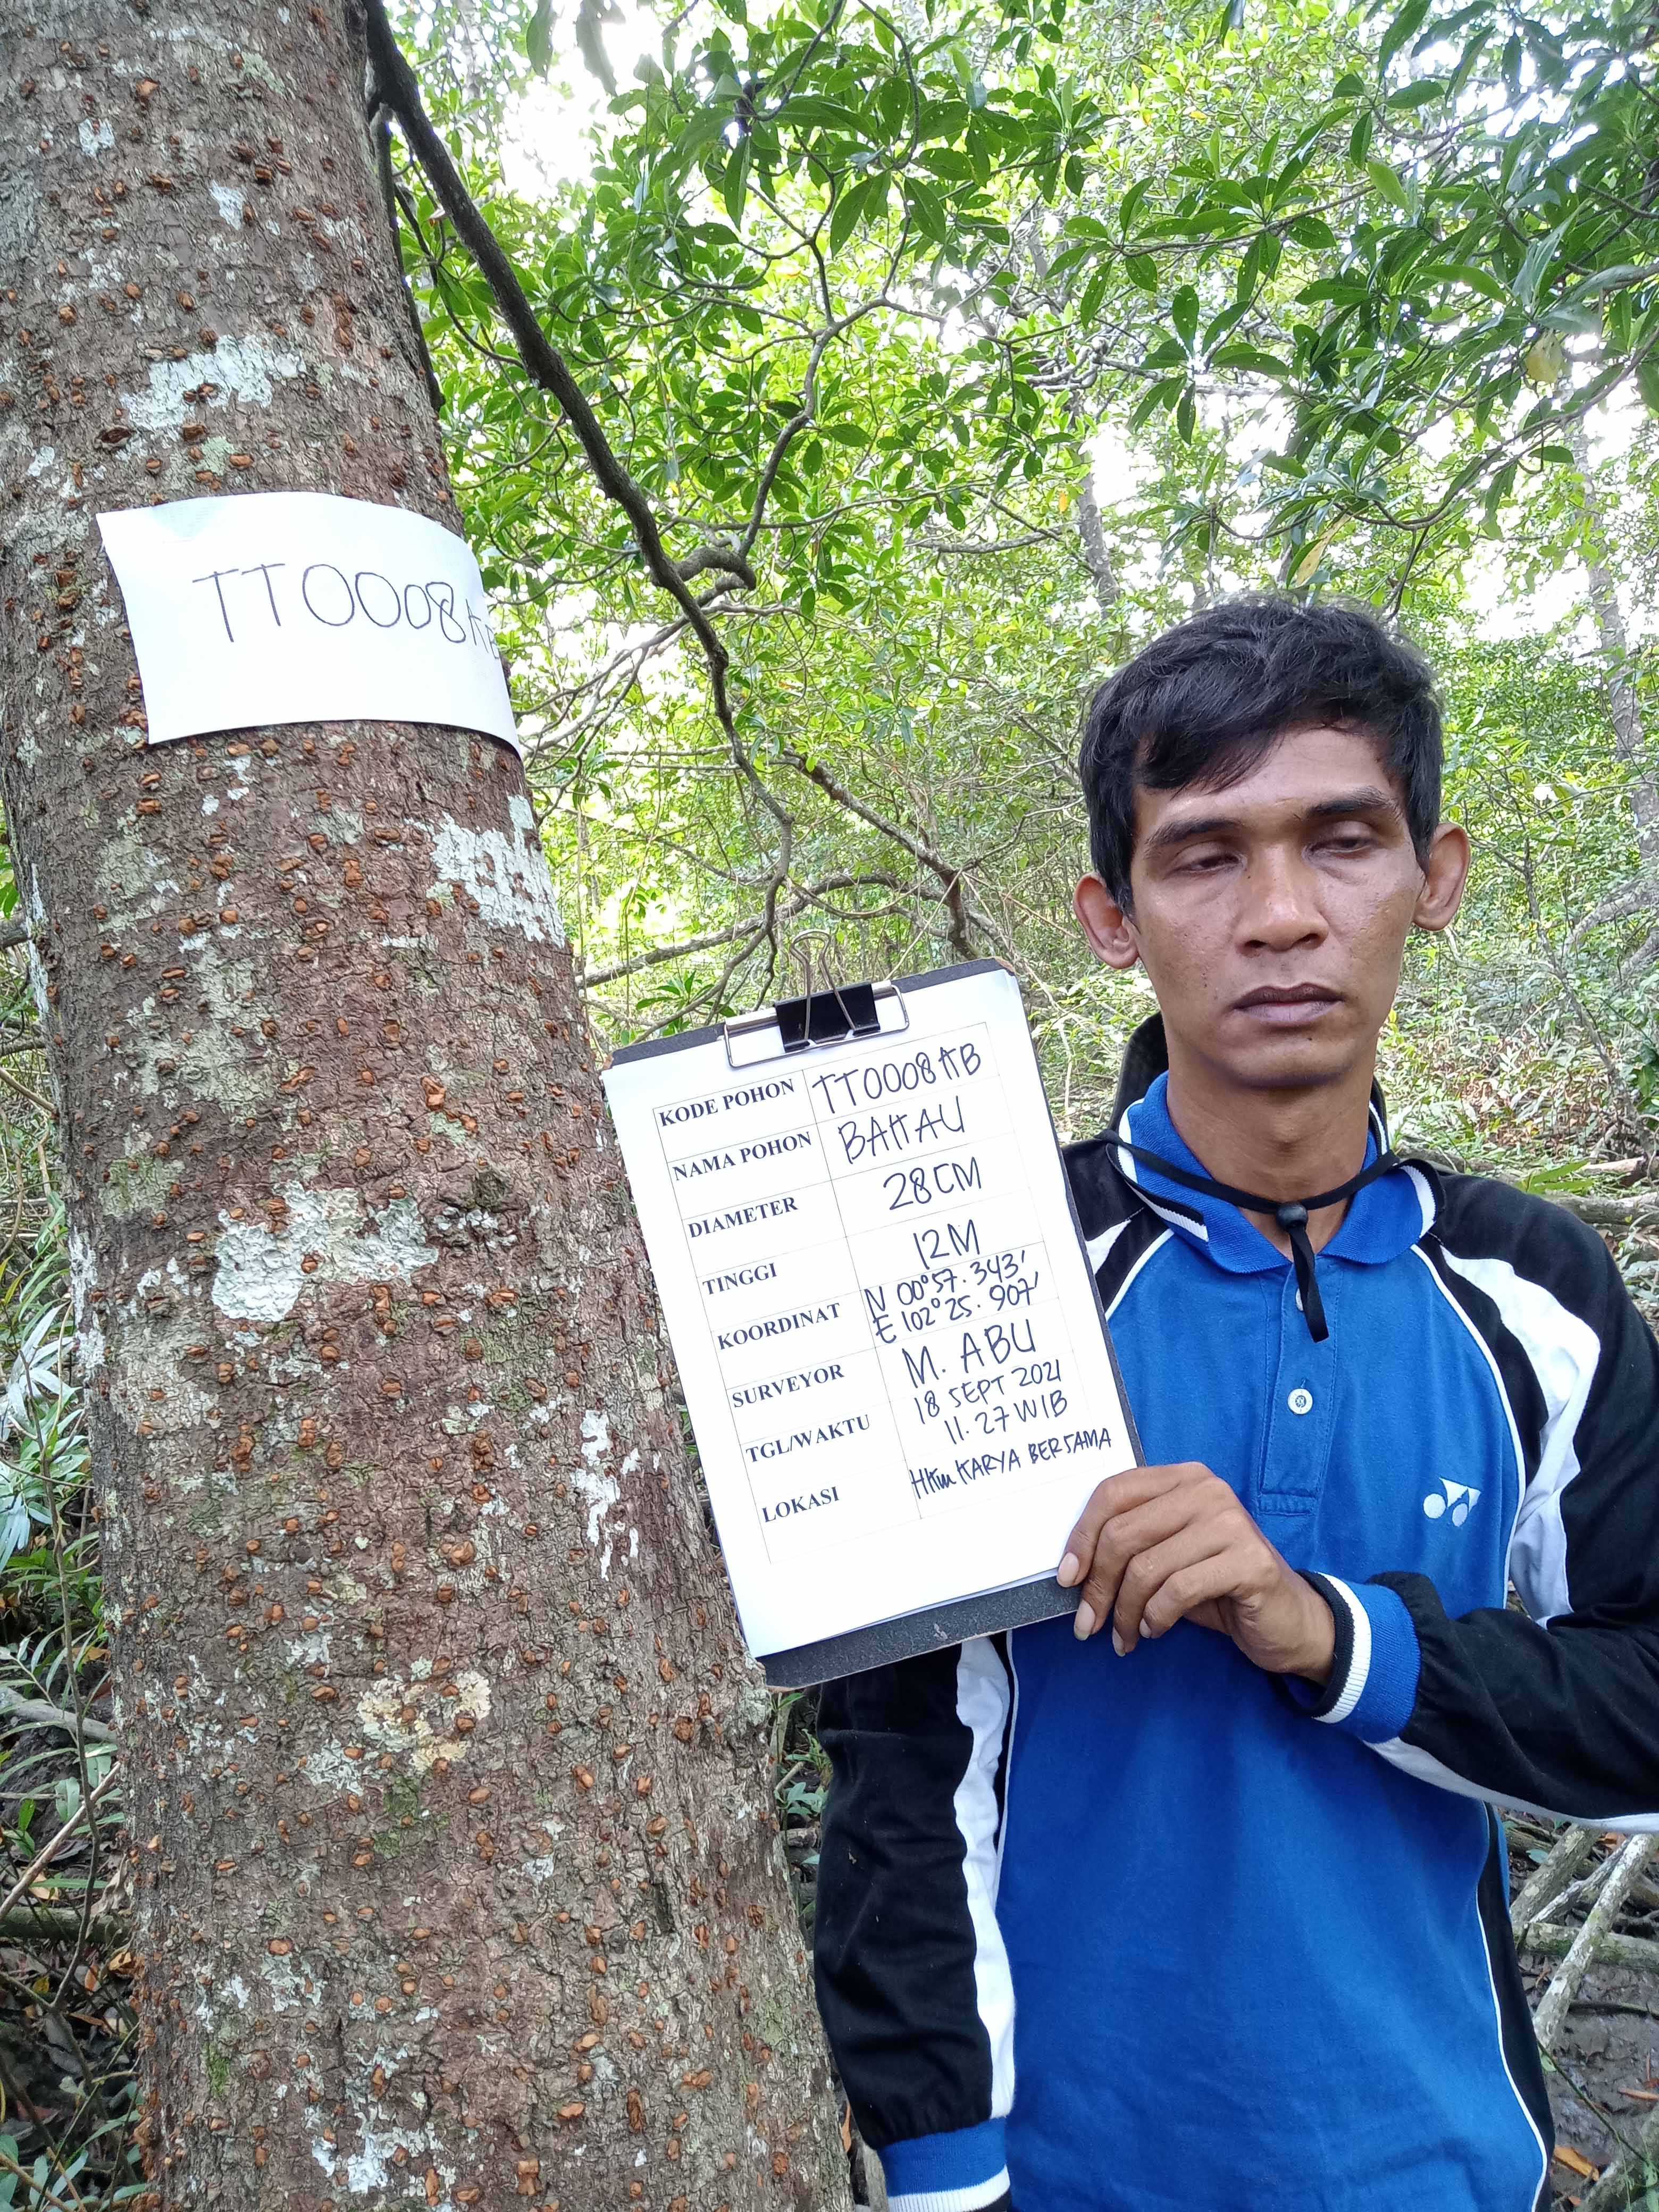 TT0008KB
KODE POHON TT0008KB
NAMA POHON BAKAU
DIAMETER 28CM
TINGGI 12M
KOORDINAT N 00°57.343'
E 102°25.907'
SURVEYOR M. ABU
TGL/WAKTU 18 SEPT 2021
11.27 WIB
LOKASI HKm KARYA BERSAMA